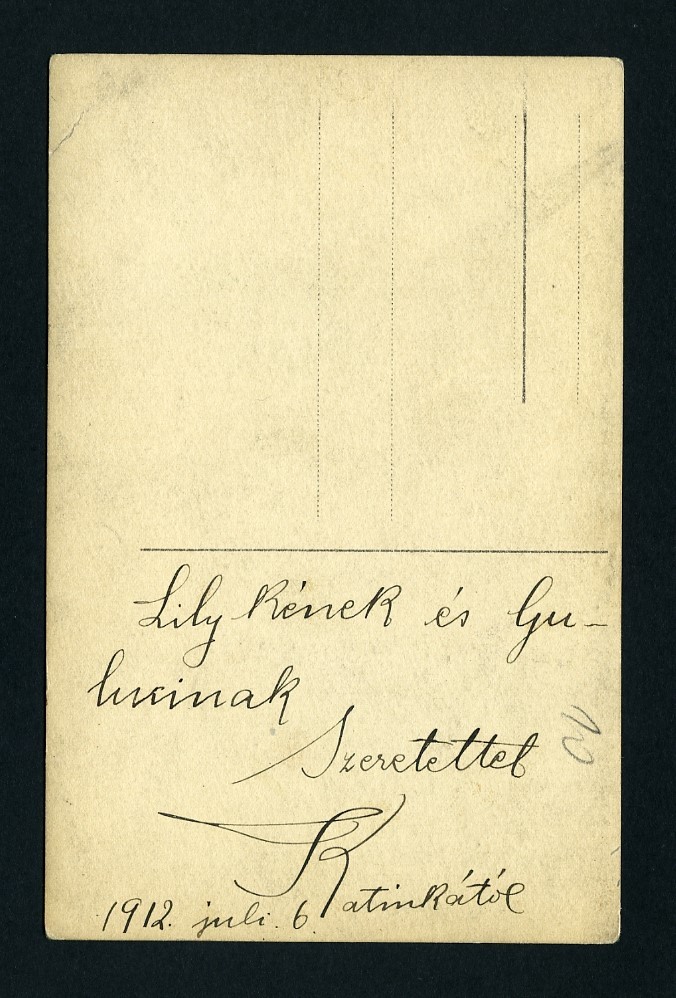 Lilykének és Gu-
lucinak
Szeretettel
Katinkától
1912. juli. 6.